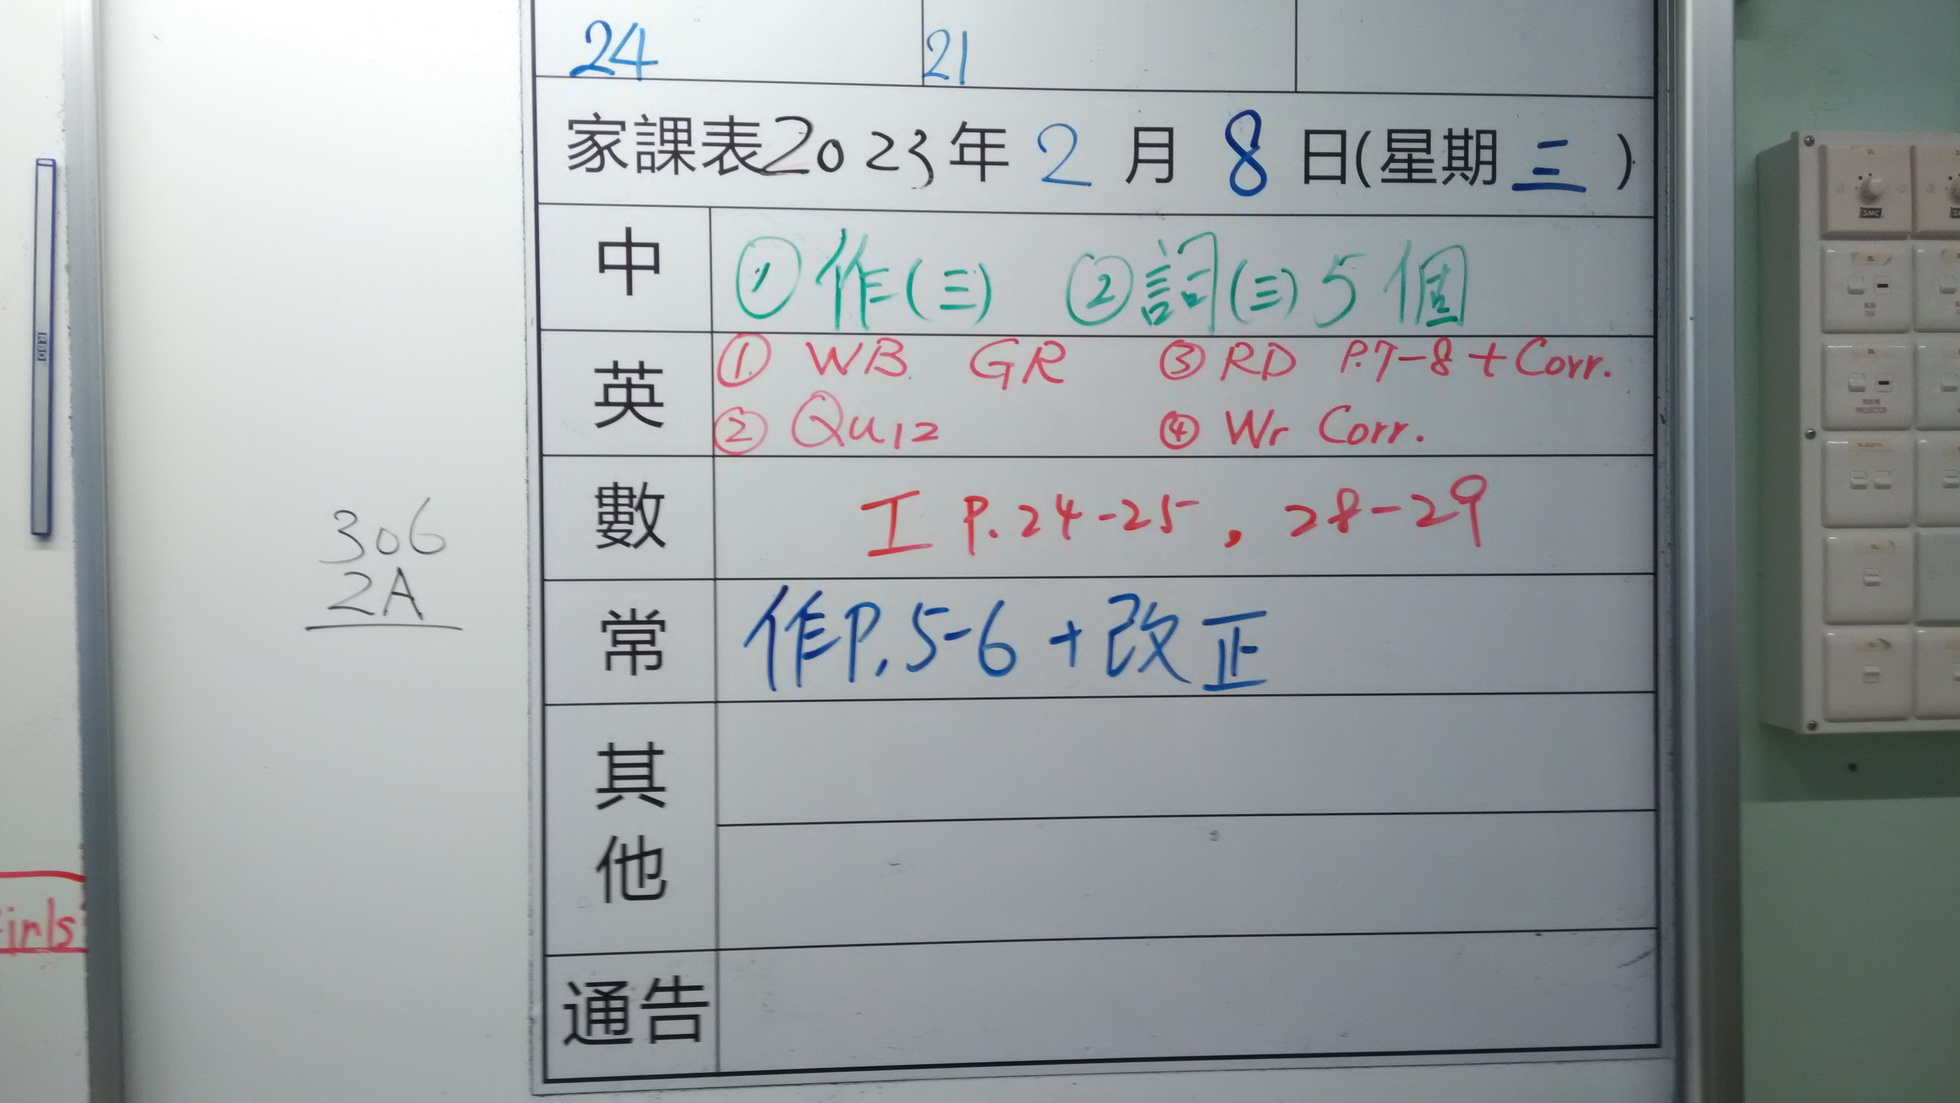 24 21
家課表2023年2月8日(星期三)
中 ①作(三) ②詞(三)5個
英 ① WB GR ③ RD P.7-8 + Corr.
② Quiz ④ Wr Corr.
數 工 P.24-25, 28-29
常 作P.5-6 + 改正
其他
通告
306
2A
irls
SMC
PROJECTOR